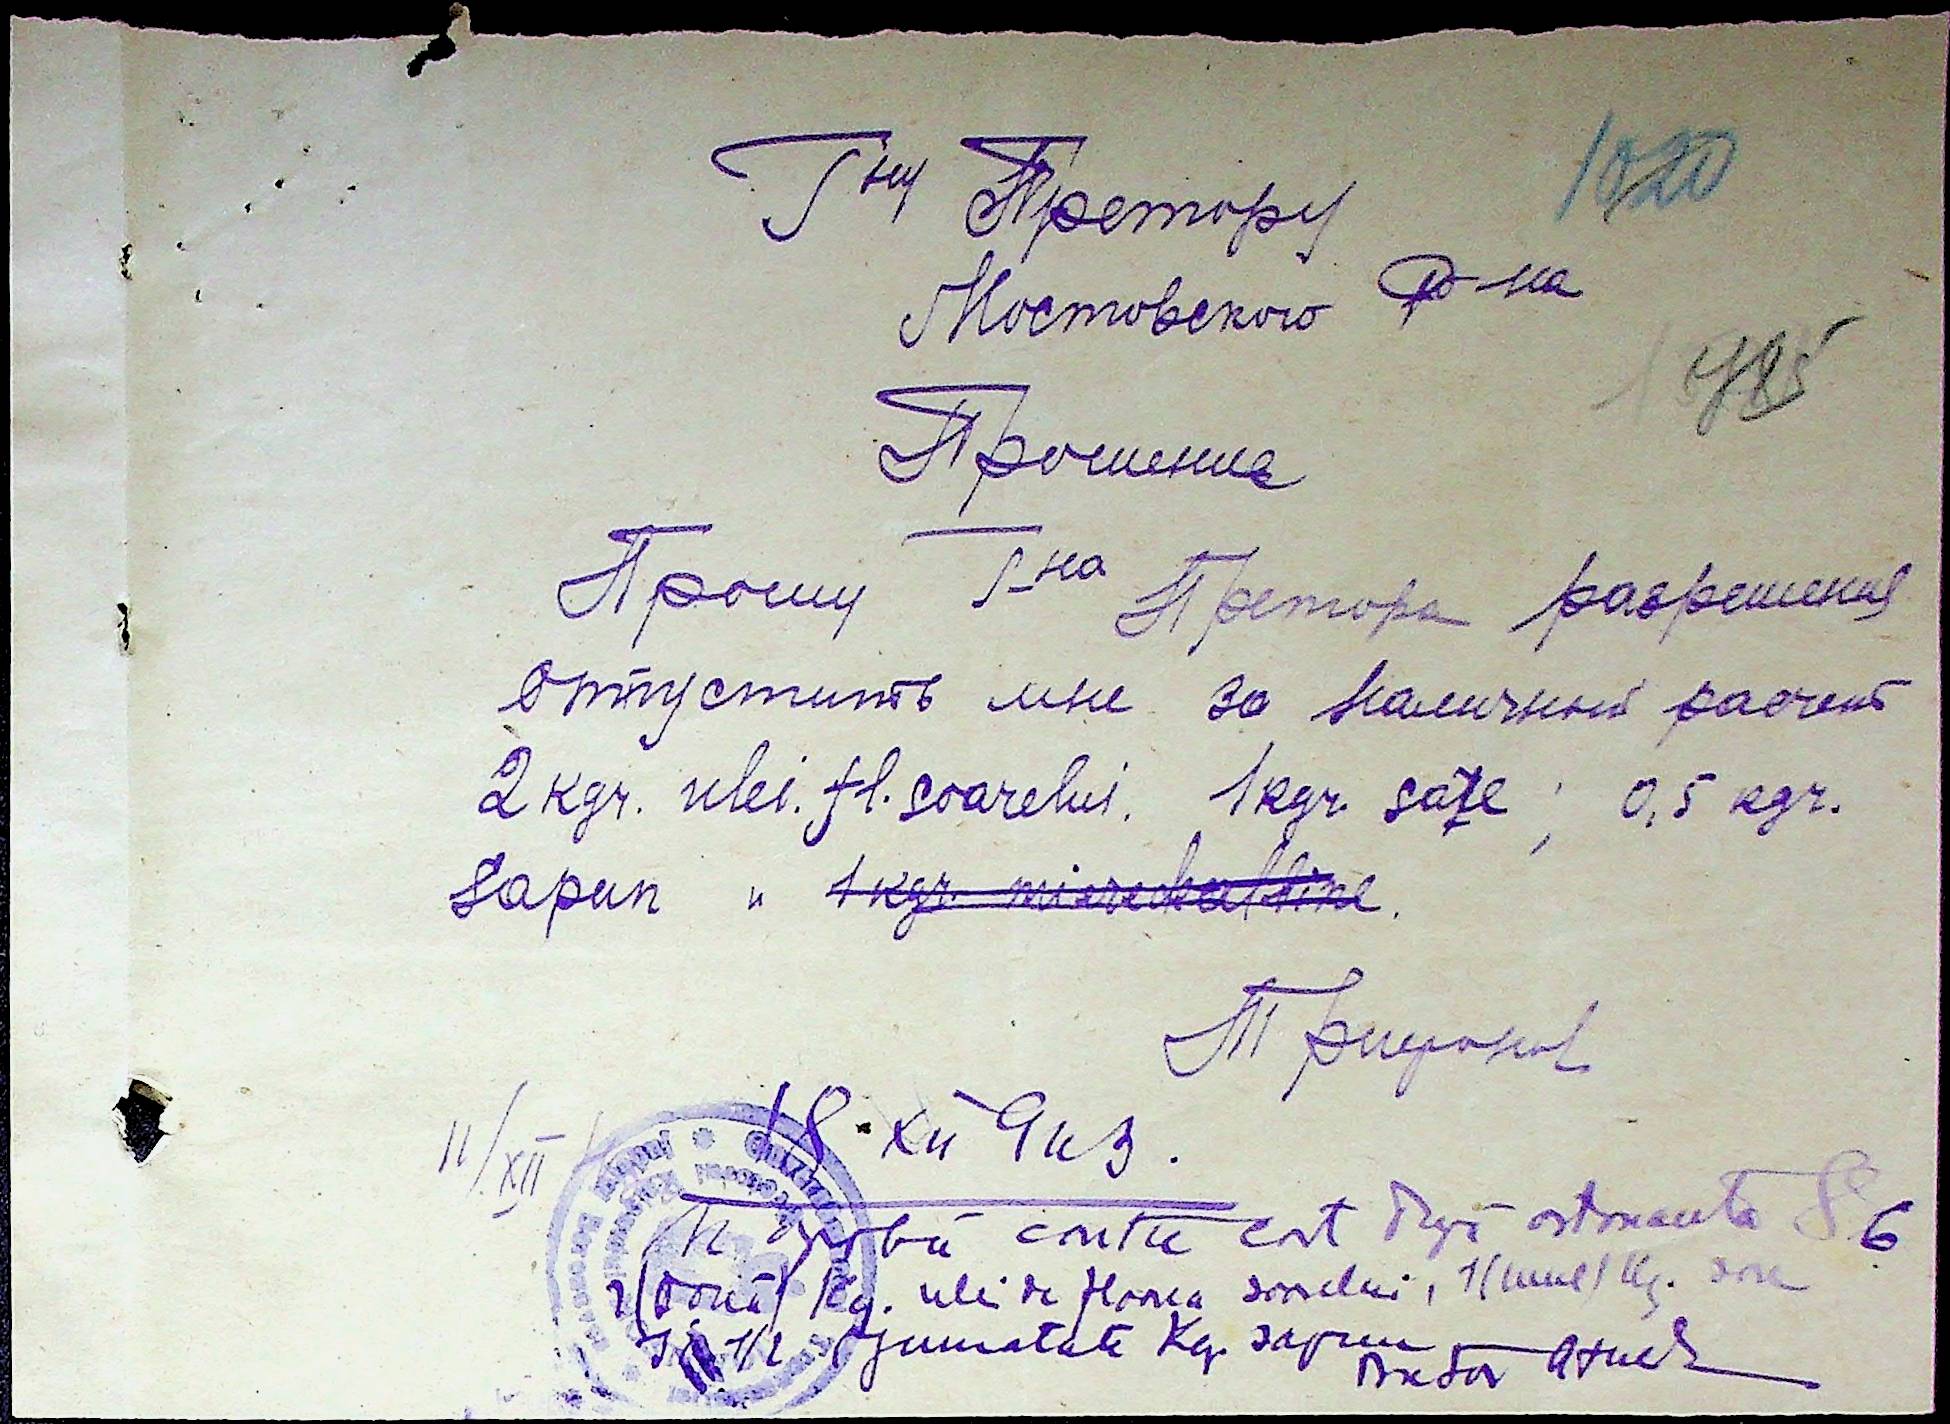 1020
Г-ну Претору
Мостовского р-на
Прошение
Прошу Г-на Претора разрешения
отпустить мне за наличный расчет
2 kgr. ulei. fl. soarelui. 1 kgr. sare ; 0,5 kgr.
sapun и 1 kgr.
18 XII 943.
11/XII
contra cost ordonanta
2 (Două) Kg. ulei de floarea soarelui, 1 (unu) Kg. sare
și 1/2 jumatate Kg. sapun